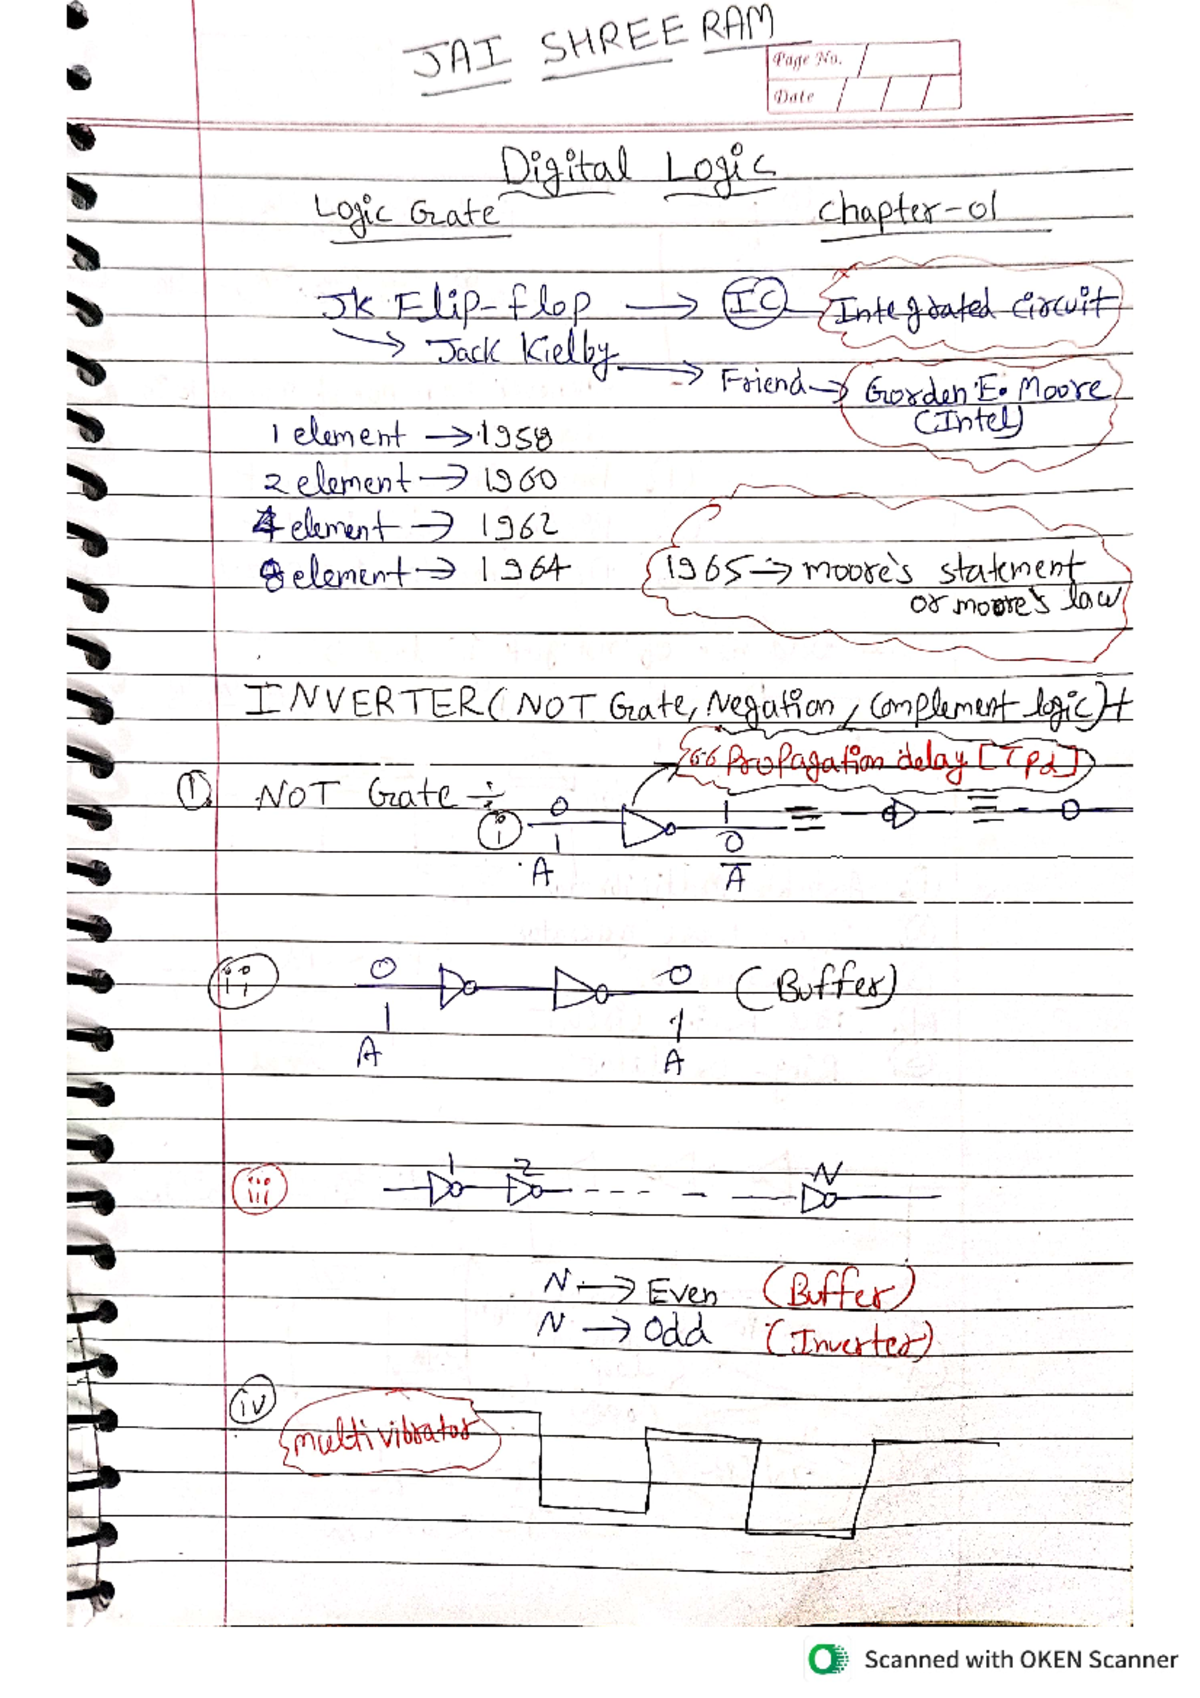 JAI SHREE RAM
Page No.
Date
Digital Logic
Logic Gate
Chapter-01
JK Flip-flop → IC Integrated circuit
→ Jack Kielby → Friend → Gorden E. Moore
(Intel)
1 element → 1958
2 element → 1960
4 element → 1962
8 element → 1964
1965 → moore's statement
or moore's law
INVERTER (NOT Gate, Negation, Complement logic)
Propagation delay [Tpd]
① NOT Gate ÷
i 0 1 ≡ ≡
1 0
A A̅
ii 0 0 (Buffer)
1 1
A A
iii 1 2 - - - - N
N → Even (Buffer)
N → Odd (Inverter)
iv multivibrator
Scanned with OKEN Scanner